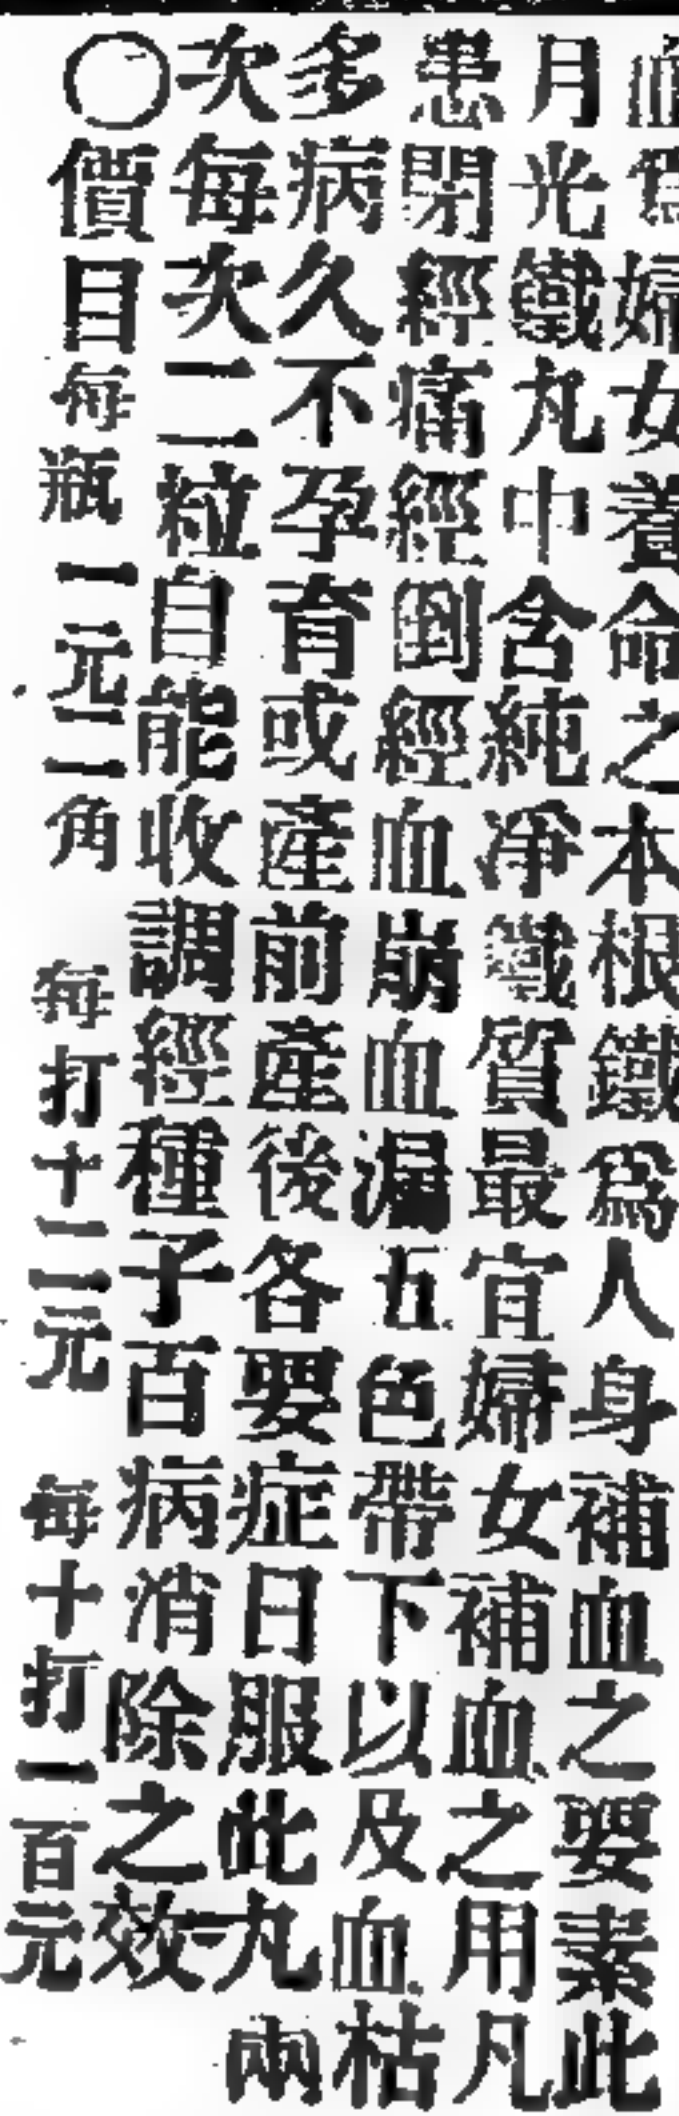 血爲婦女養命之本根鐵爲人身補血之要素此
月光鐵丸中含純淨鐵質最宜婦女補血之用凡
患閉經痛經倒經血崩血漏五色帶下以及血枯
多病久不孕育或產前產後各要症日服此丸兩
次每次二粒自能收調經種子百病消除之效
○價目每瓶一元二角 每打十二元 每十打一百元